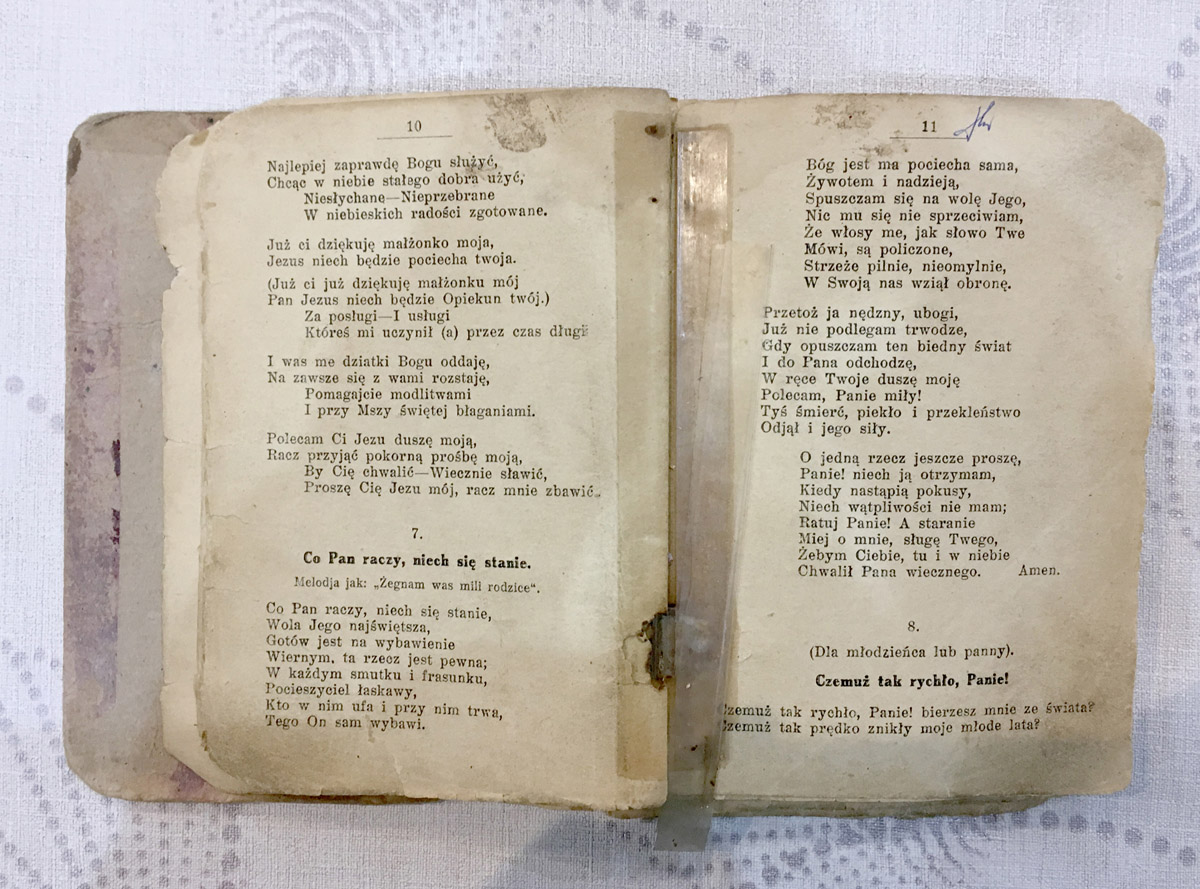 10
Najlepiej zaprawdę Bogu służyć,
Chcąc w niebie stałego dobra użyć,
Niesłychane—Nieprzebrane
W niebieskich radości zgotowane.
Już ci dziękuję małżonko moja,
Jezus niech będzie pociecha twoja.
(Już ci już dziękuję małżonku mój
Pan Jezus niech będzie Opiekun twój.)
Za posługi—I usługi
Któreś mi uczynił (a) przez czas długi
I was me dziatki Bogu oddaję,
Na zawsze się z wami rozstaję,
Pomagajcie modlitwami
I przy Mszy świętej błaganiami.
Polecam Ci Jezu duszę moją,
Racz przyjąć pokorną prośbę moją,
By Cię chwalić—Wiecznie sławić,
Proszę Cię Jezu mój, racz mnie zbawić.
7.
Co Pan raczy, niech się stanie.
Melodja jak: „Żegnam was mili rodzice“.
Co Pan raczy, niech się stanie,
Wola Jego najświętsza,
Gotów jest na wybawienie
Wiernym, ta rzecz jest pewna;
W każdym smutku i frasunku,
Pocieszyciel łaskawy,
Kto w nim ufa i przy nim trwa,
Tego On sam wybawi.
11
Bóg jest ma pociecha sama,
Żywotem i nadzieją,
Spuszczam się na wolę Jego,
Nic mu się nie sprzeciwiam,
Że włosy me, jak słowo Twe
Mówi, są policzone,
Strzeże pilnie, nieomylnie,
W Swoją nas wziął obronę.
Przetoż ja nędzny, ubogi,
Już nie podlegam trwodze,
Gdy opuszczam ten biedny świat
I do Pana odchodzę,
W ręce Twoje duszę moję
Polecam, Panie miły!
Tyś śmierć, piekło i przekleństwo
Odjął i jego siły.
O jedną rzecz jeszcze proszę,
Panie! niech ją otrzymam,
Kiedy nastąpią pokusy,
Niech wątpliwości nie mam;
Ratuj Panie! A staranie
Miej o mnie, sługę Twego,
Żebym Ciebie, tu i w niebie
Chwalił Pana wiecznego. Amen.
8.
(Dla młodzieńca lub panny).
Czemuż tak rychło, Panie!
Czemuż tak rychło, Panie! bierzesz mnie ze świata?
Czemuż tak prędko znikły moje młode lata?